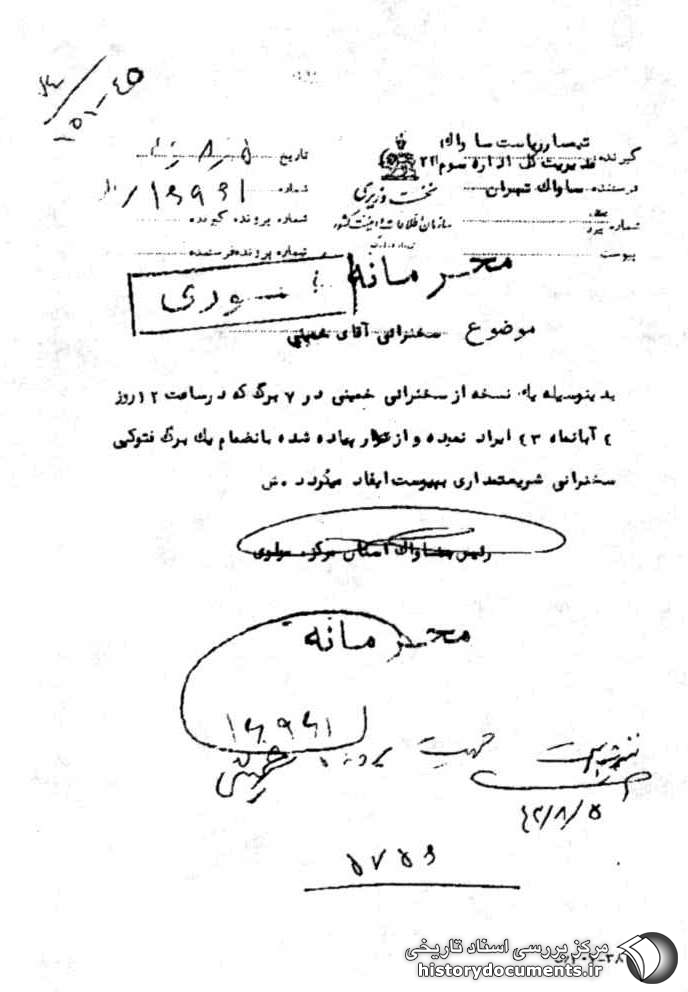 ۴۵-۱۵۱
گیرنده تیمسار ریاست ساواک
مدیریت کل اداره سوم
فرستنده ساواک تهران
شماره
پیوست
نخست وزیری
سازمان اطلاعات و امنیت کشور
تاریخ
شماره
شماره پرونده گیرنده
شماره پرونده فرستنده
محرمانه
فوری
موضوع سخنرانی آقای خمینی
بدینوسیله یک نسخه از سخنرانی خمینی در ۷ برگ که در ساعت ۱۲ روز
۴ آبانماه ۴۳ ایراد نمیده و از نوار پیاده شده بانضمام یک برگ فتوکپی
سخنرانی شریعتمداری بپیوست ایفاد میگردد. ض
رئیس ساواک استان مرکز. مولوی
محرمانه
جهت پرونده خمینی
۴۳/۸/۵
۵۷۵۶
مرکز بررسی اسناد تاریخی
historydocuments.ir